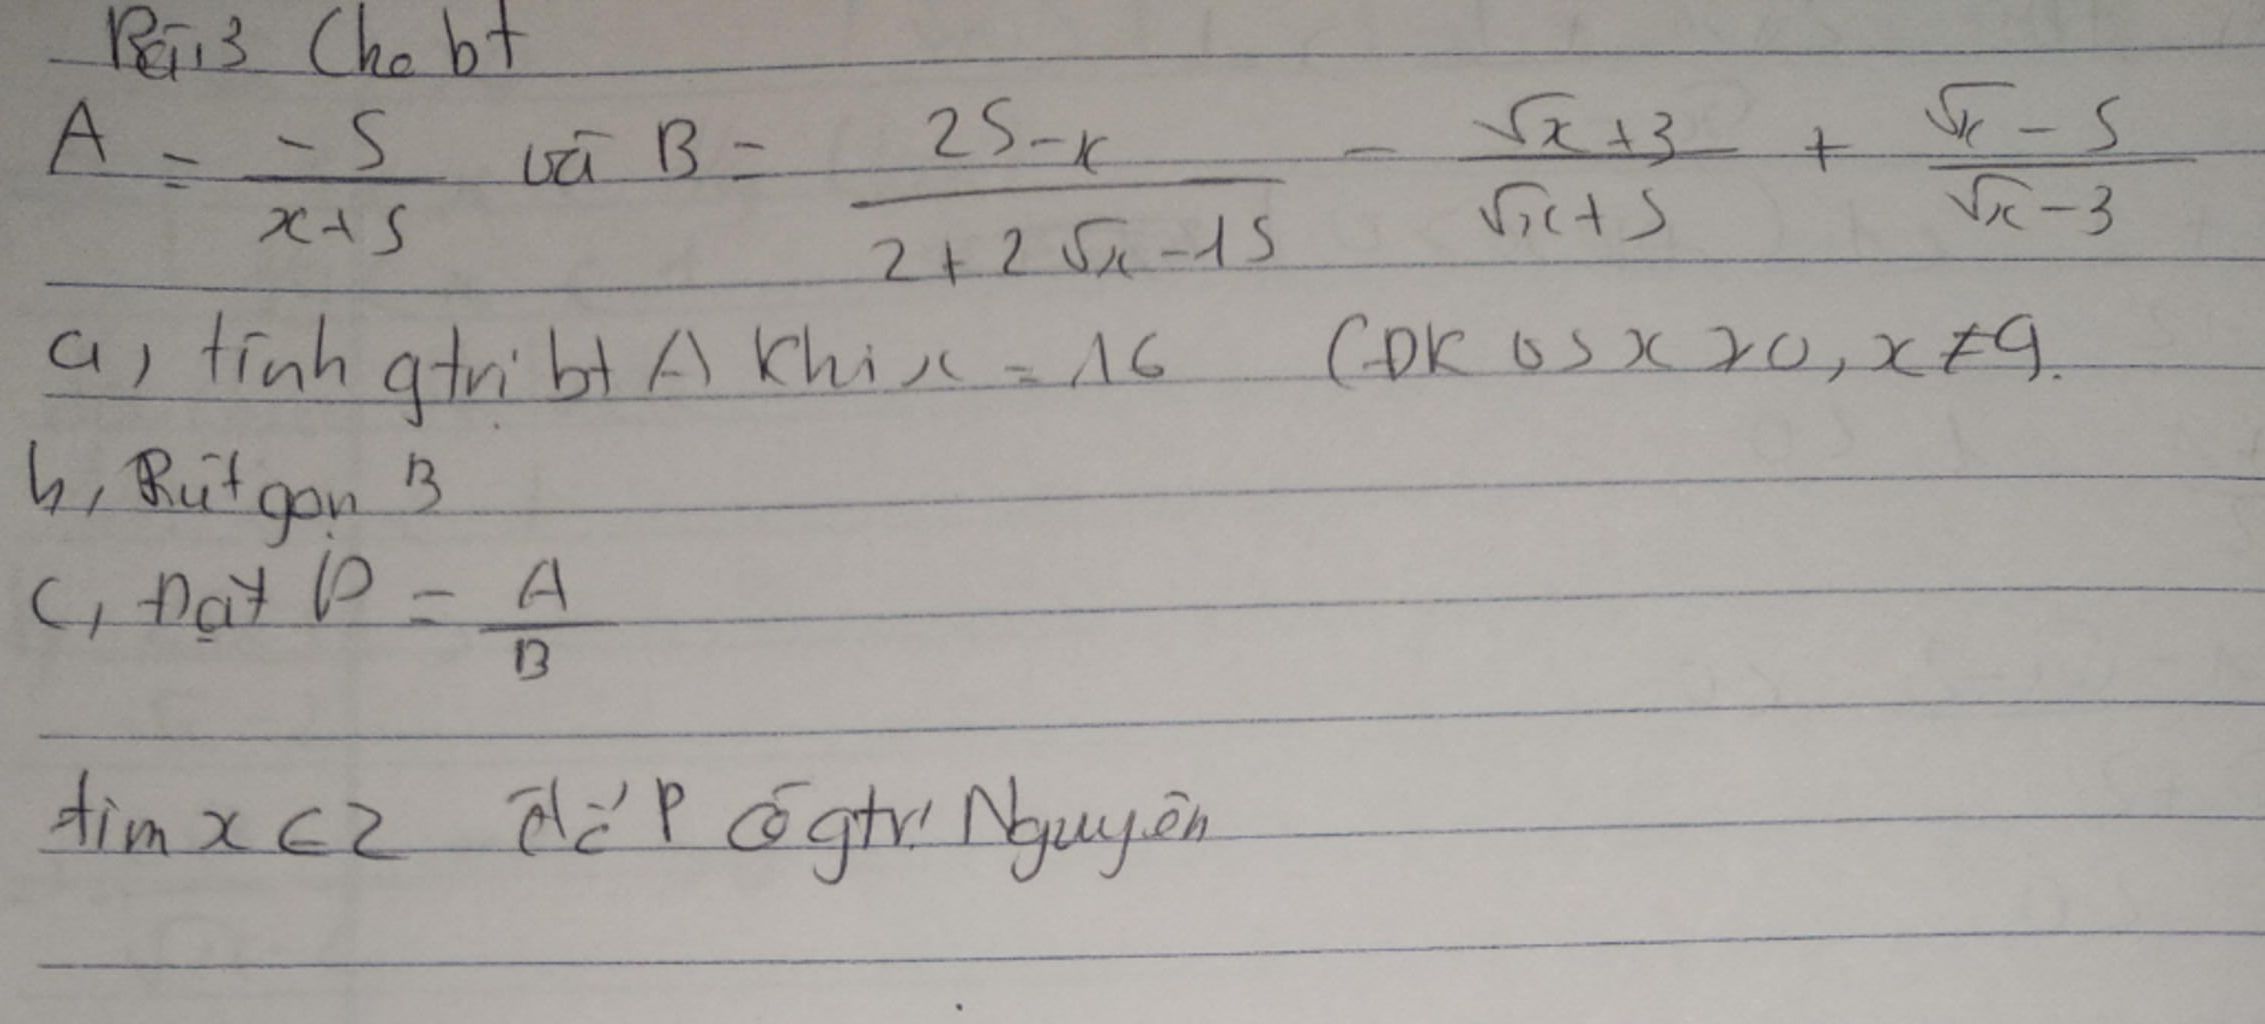 Bài 3 Cho bt
A = \frac{-5}{x+5} và B = \frac{25-x}{2+2\sqrt{x}-15} - \frac{\sqrt{x}+3}{\sqrt{x}+5} + \frac{\sqrt{x}-5}{\sqrt{x}-3}
a, tính gtrị bt A khi x = 16 (ĐK x ≥ 0, x ≠ 9.
b, Rút gọn B
c, Đặt P = \frac{A}{B}
tìm x ∈ Z để P có gtrị Nguyên